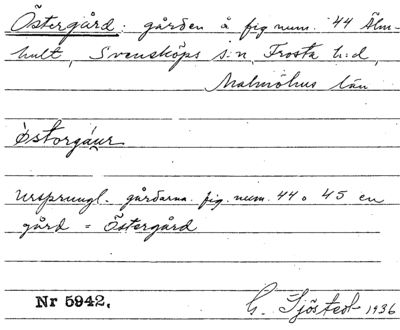 Östergård: gården å fig num. 44 Älm-
hult, Svensköps s:n, Frosta h:d,
Malmöhus län
östorgáur
Ursprungl. gårdarna fig. num. 44 o 45 en
gård = Östergård
Nr 5942. G. Sjöstedt 1936